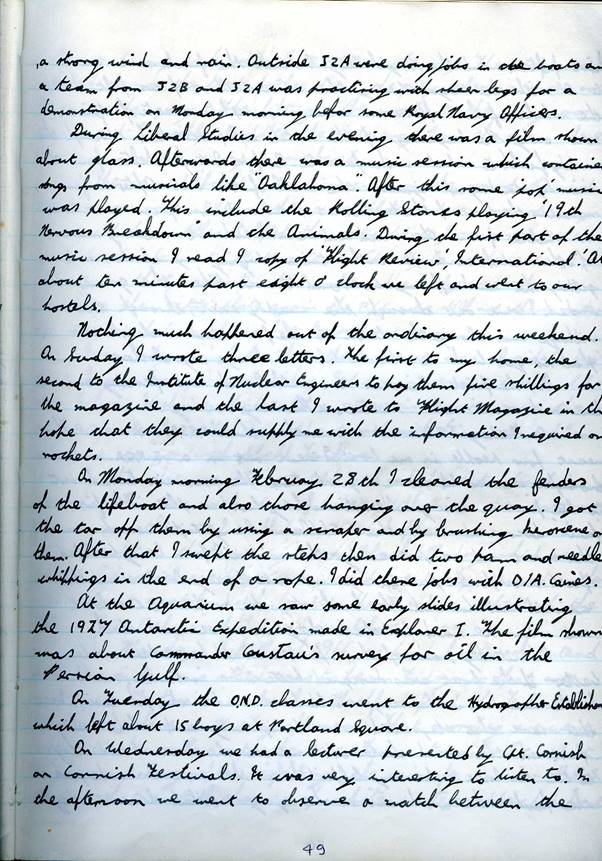 a strong wind and rain. Outside J2A were doing jobs in the boats an
a team from J2B and J2A was practising with sheer legs for a
demonstration on Monday morning befor some Royal Navy Officers.
During Liberal Studies in the evening there was a film shown
about glass. Afterwards there was a music session which containe
songs from musicals like "Oaklahoma". After this some 'pop' music
was played. This include the Rolling Stones playing '19th
Nervous Breakdown' and the Animals. During the first part of the
music session I read 1 copy of 'Flight Review', International.' At
about ten minutes past eight o' clock we left and went to our
hostels.
Nothing much happened out of the ordinary this weekend.
On Sunday I wrote three letters. The first to my home, the
second to the Institute of Nuclear Engineers to pay them five shillings for
the magazine and the last I wrote to 'Flight Magazine in th
hope that they could supply me with the information I required on
rockets.
On Monday morning February 28th I cleaned the fenders
of the lifeboat and also those hanging over the quay. I got
the tar off them by using a scraper and by brushing kerosene on
them. After that I swept the steps then did two palm and needle
whippings in the end of a rope. I did these jobs with D/A.
At the Aquarium we saw some early slides illustrating
the 1927 Antarctic Expedition made in Explorer I. The film shown
was about Commander Coustau's survey for oil in the
Persian Gulf.
On Tuesday the O.N.D. classes went to the Hydrographer Establishm
which left about 15 boys at Portland Square.
On Wednesday we had a lecturer presented by Cpt. Cornish
on Cornish Festivals. It was very interesting to listen to. In
the afternoon we went to observe a match between the
49